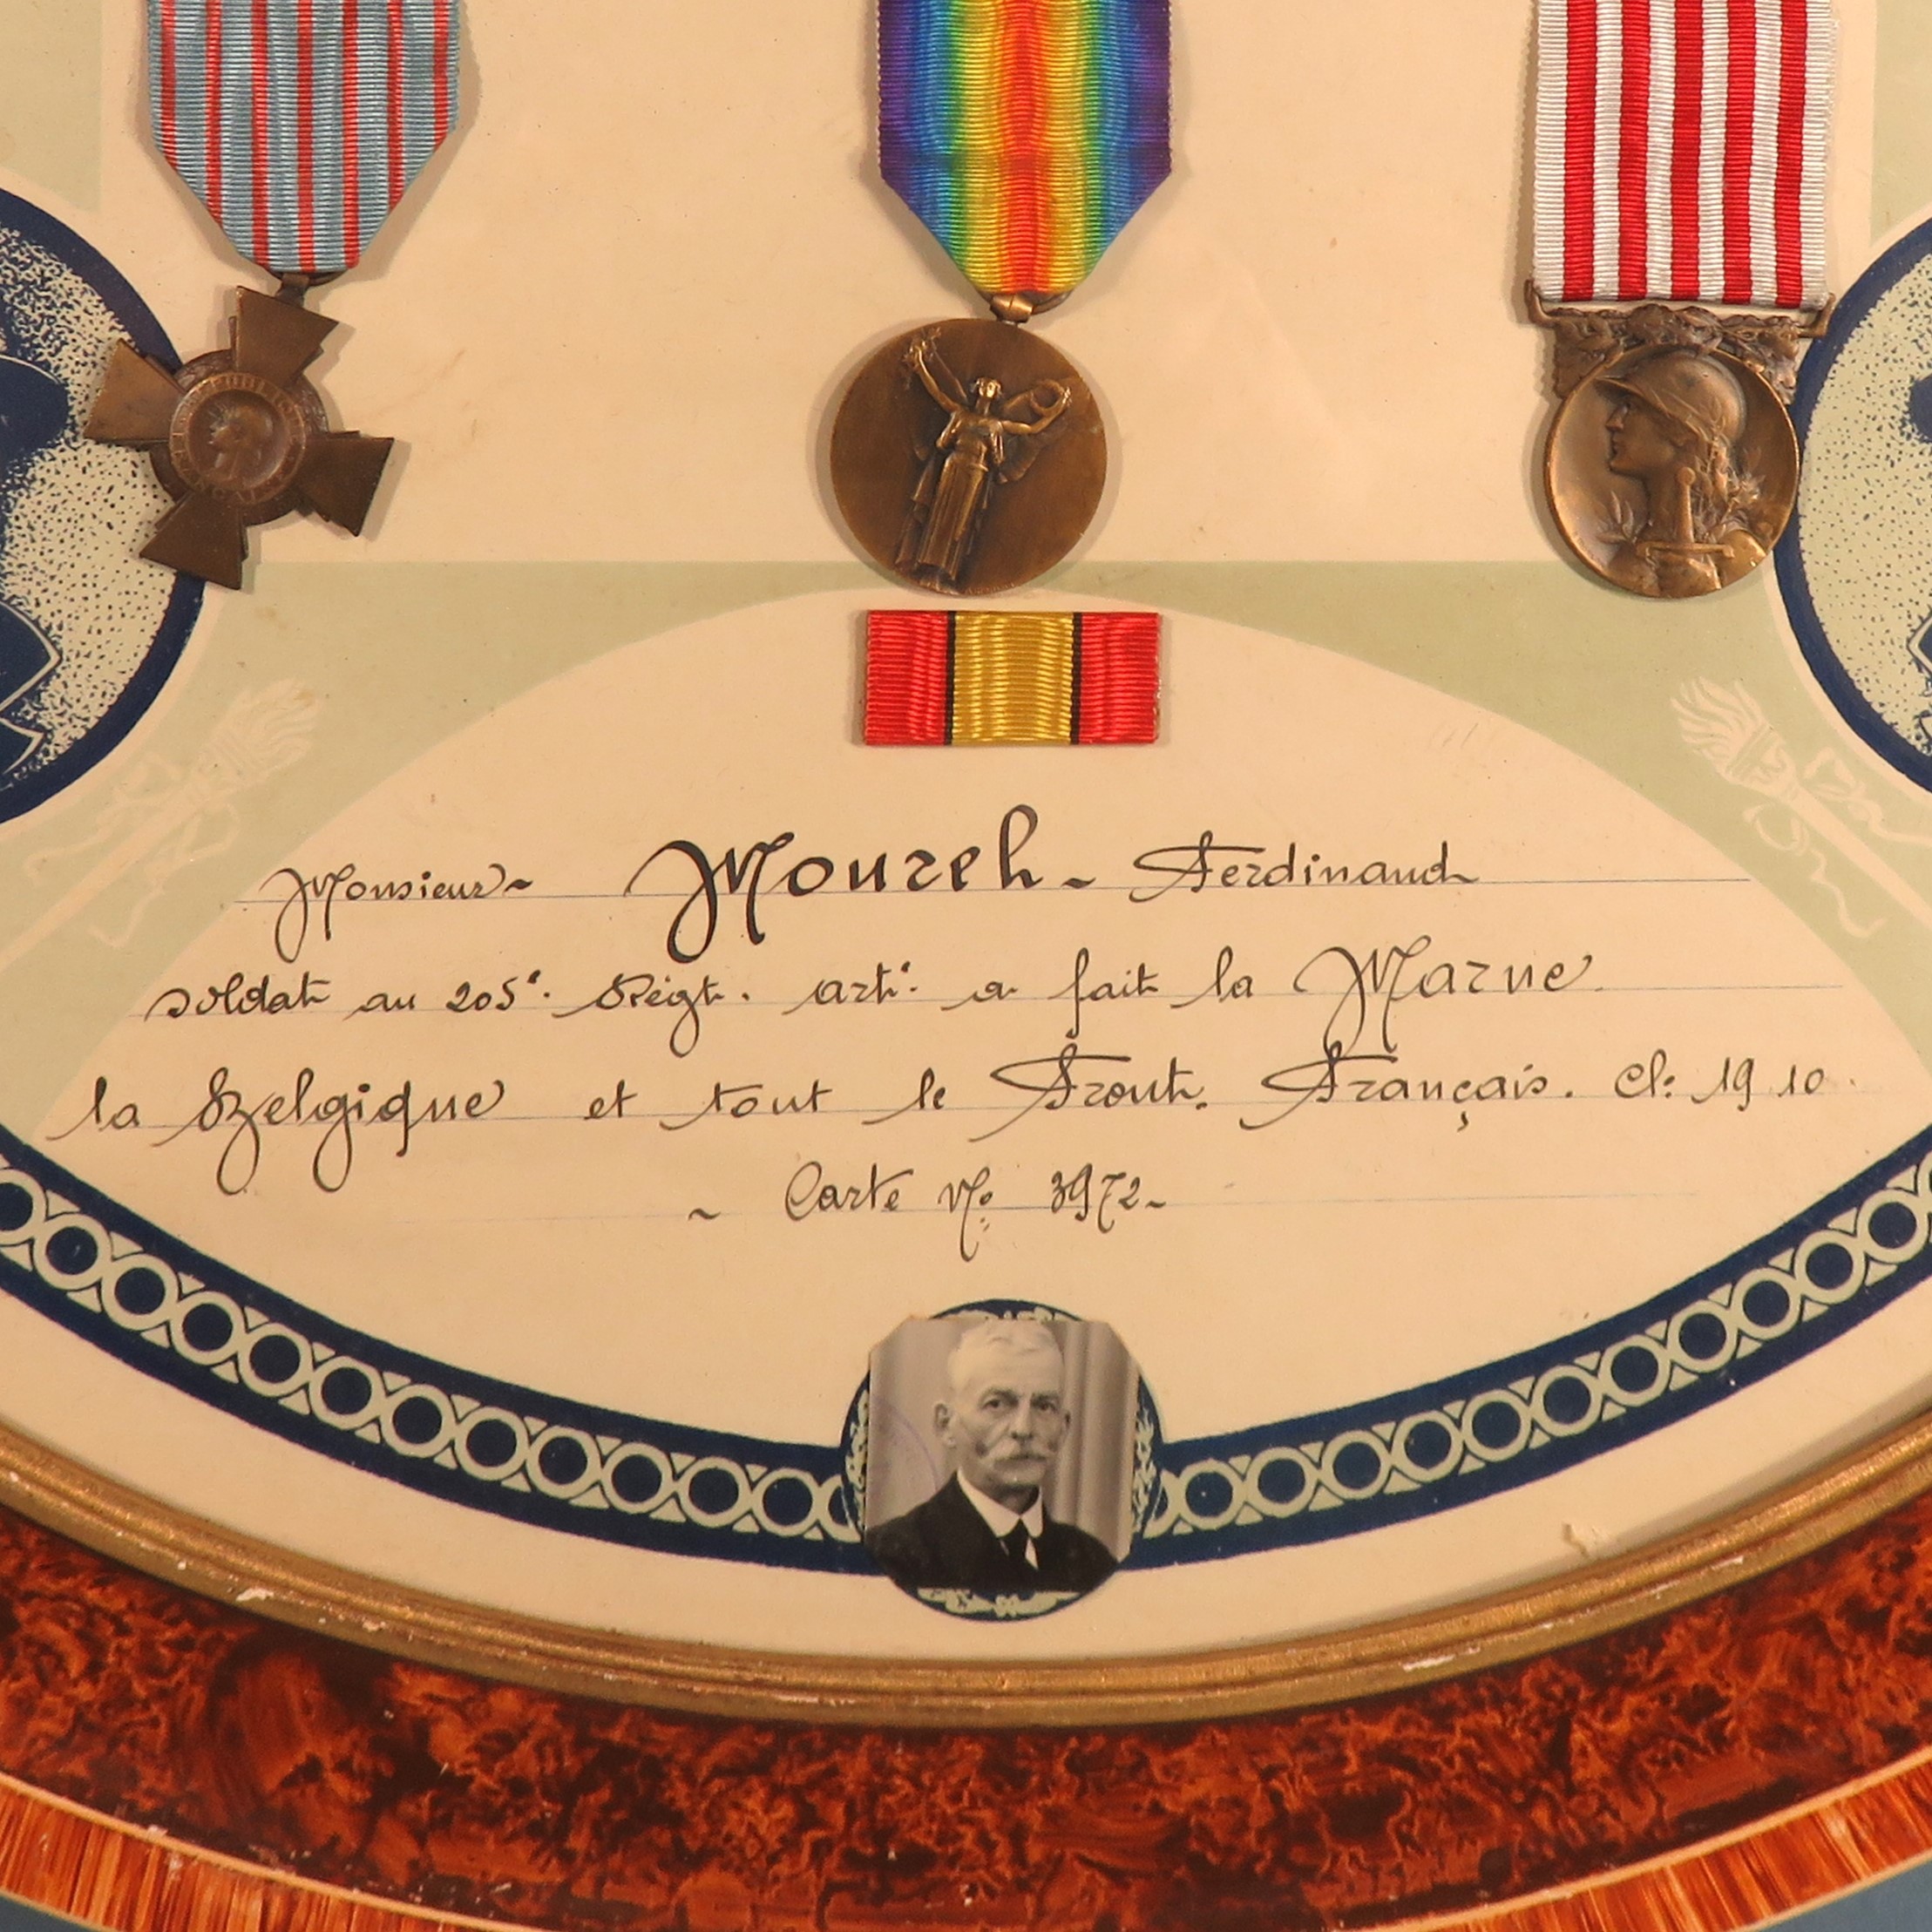 Monsieur ~ Moureh ~ Ferdinand
soldat au 205e. Régt. arti. a fait la Marne.
la Belgique et tout le Front. Français. Cl: 1910.
~ Carte No: 3972 ~